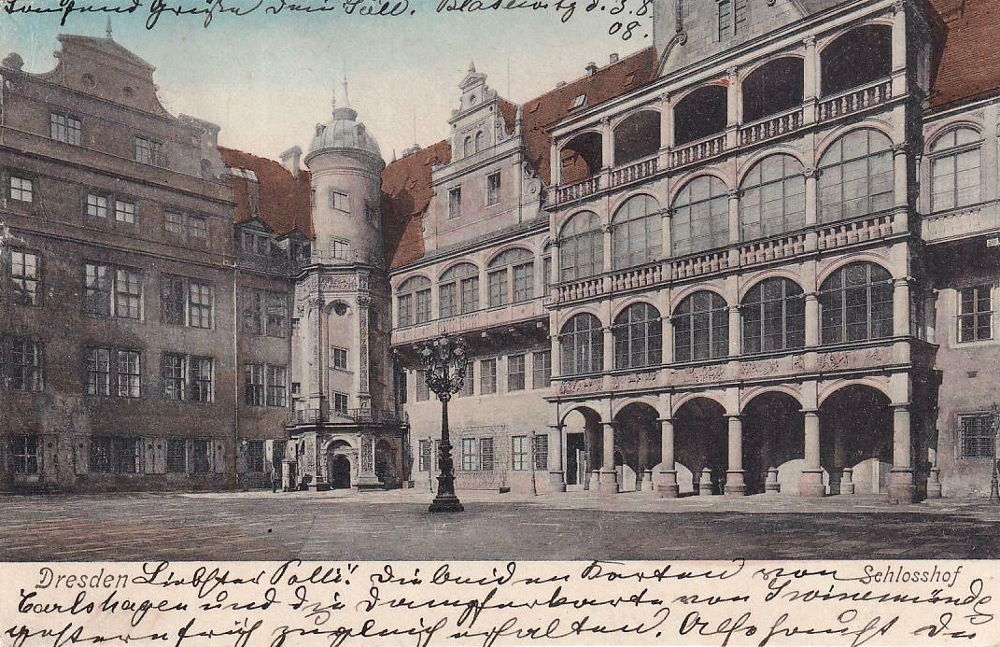 Tausend Grüße Dein Sall. Blasewitz d. 3.8
08.
Dresden Schlosshof
Liebster Polli! Die beiden Karten von
Carlshagen und die Dampferkarte von Swinemünde
gestern früh zugleich erhalten. Also hast Du